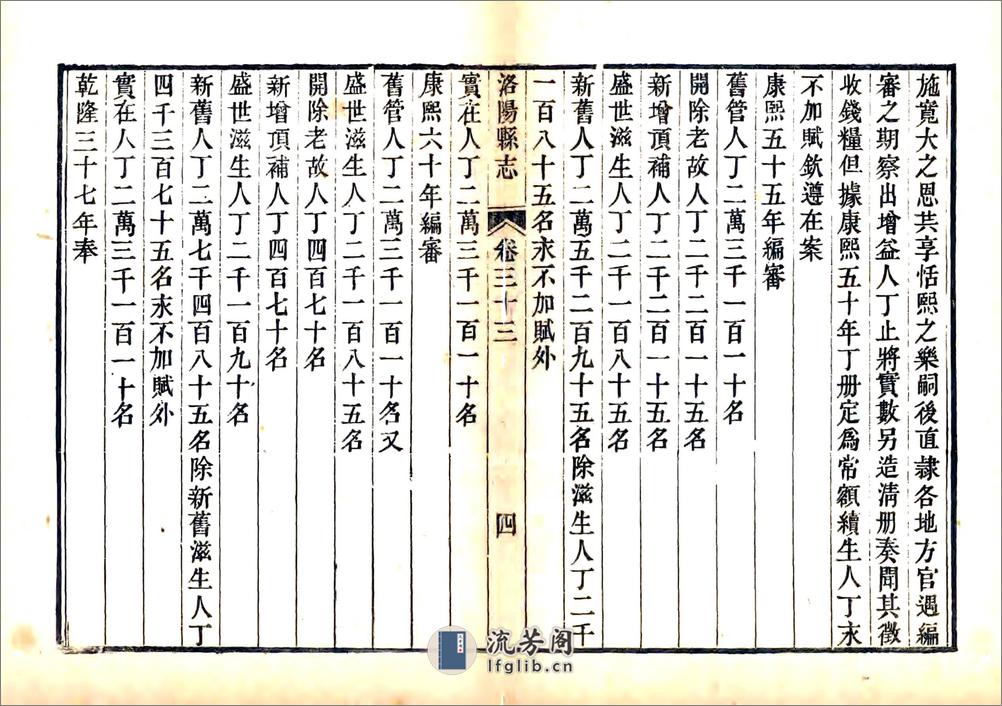 施寬大之恩共享恬熙之樂嗣後直隷各地方官遇編
審之期察出增益人丁止將實數另造淸册奏聞其徵
收錢糧但據康熙五十年丁册定爲常額續生人丁永
不加賦欽遵在案
康熙五十五年編審
舊管人丁二萬三千一百一十名
開除老故人丁二千二百一十五名
新增頂補人丁二千二百一十五名
盛世滋生人丁二千一百八十五名
新舊人丁二萬五千二百九十五名除滋生人丁二千
一百八十五名永不加賦外
洛陽縣志
卷三十三
四
實在人丁二萬三千一百一十名
康熙六十年編審
舊管人丁二萬三千一百一十名又
盛世滋生人丁二千一百八十五名
開除老故人丁四百七十名
新增頂補人丁四百七十名
盛世滋生人丁二千一百九十名
新舊人丁二萬七千四百八十五名除新舊滋生人丁
四千三百七十五名永不加賦外
實在人丁二萬三千一百一十名
乾隆三十七年奉
流芳阁
lfglib.cn